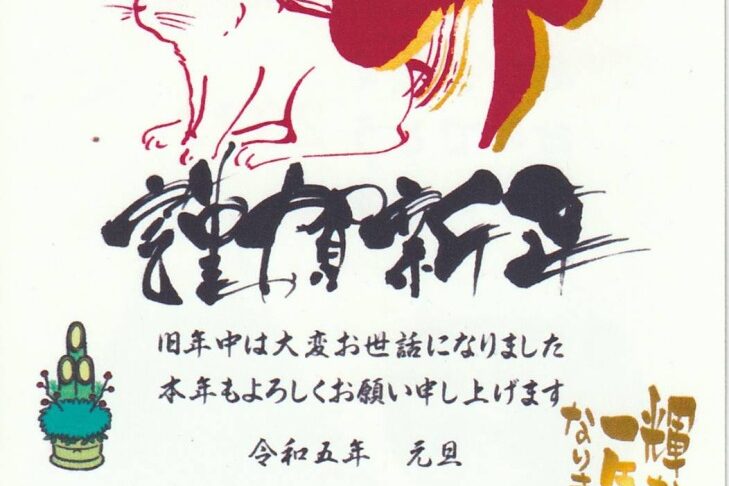 謹賀新年
旧年中は大変お世話になりました
本年もよろしくお願い申し上げます
令和五年 元旦
輝か
一年
なりま